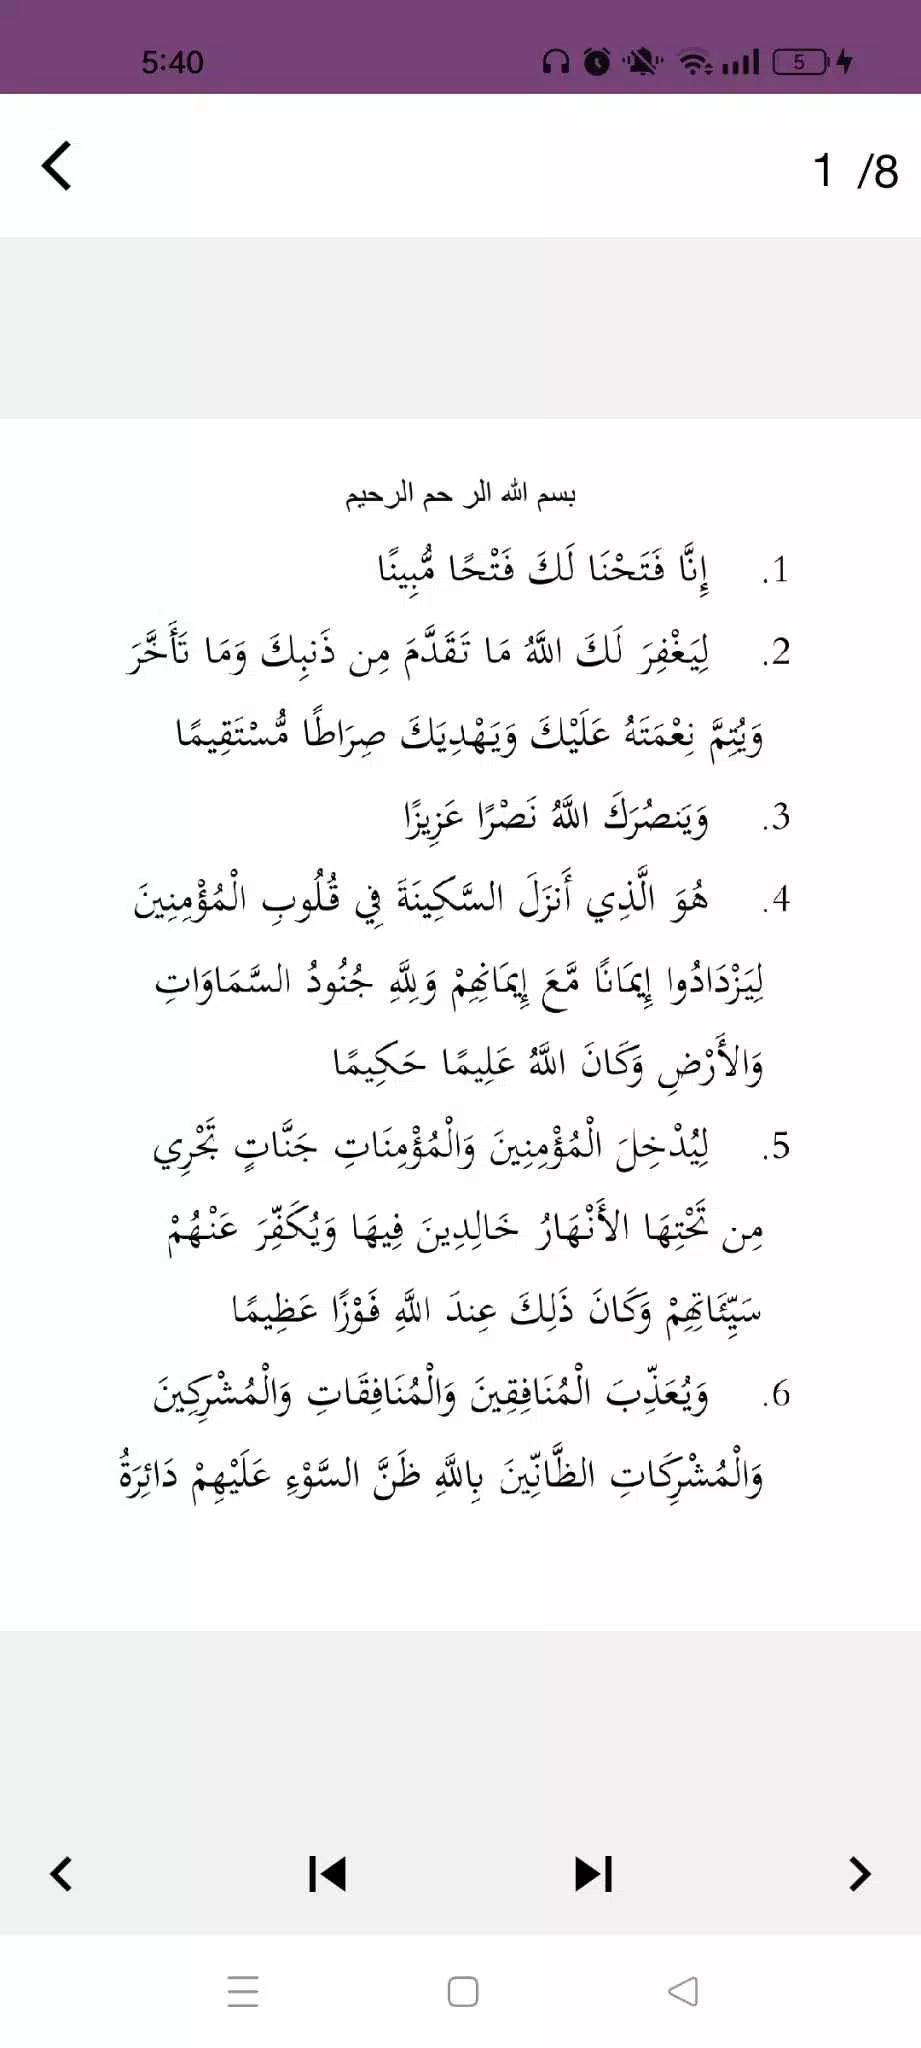 5:40
5
1 /8
بسم الله الر حم الرحيم
1. إِنَّا فَتَحْنَا لَكَ فَتْحًا مُّبِينًا
2. لِيَغْفِرَ لَكَ اللَّهُ مَا تَقَدَّمَ مِن ذَنبِكَ وَمَا تَأَخَّرَ
وَيُتِمَّ نِعْمَتَهُ عَلَيْكَ وَيَهْدِيَكَ صِرَاطًا مُّسْتَقِيمًا
3. وَيَنصُرَكَ اللَّهُ نَصْرًا عَزِيزًا
4. هُوَ الَّذِي أَنزَلَ السَّكِينَةَ فِي قُلُوبِ الْمُؤْمِنِينَ
لِيَزْدَادُوا إِيمَانًا مَّعَ إِيمَانِهِمْ وَلِلَّهِ جُنُودُ السَّمَاوَاتِ
وَالأَرْضِ وَكَانَ اللَّهُ عَلِيمًا حَكِيمًا
5. لِيُدْخِلَ الْمُؤْمِنِينَ وَالْمُؤْمِنَاتِ جَنَّاتٍ تَجْرِي
مِن تَحْتِهَا الأَنْهَارُ خَالِدِينَ فِيهَا وَيُكَفِّرَ عَنْهُمْ
سَيِّئَاتِهِمْ وَكَانَ ذَلِكَ عِندَ اللَّهِ فَوْزًا عَظِيمًا
6. وَيُعَذِّبَ الْمُنَافِقِينَ وَالْمُنَافِقَاتِ وَالْمُشْرِكِينَ
وَالْمُشْرِكَاتِ الظَّانِّينَ بِاللَّهِ ظَنَّ السَّوْءِ عَلَيْهِمْ دَائِرَةُ